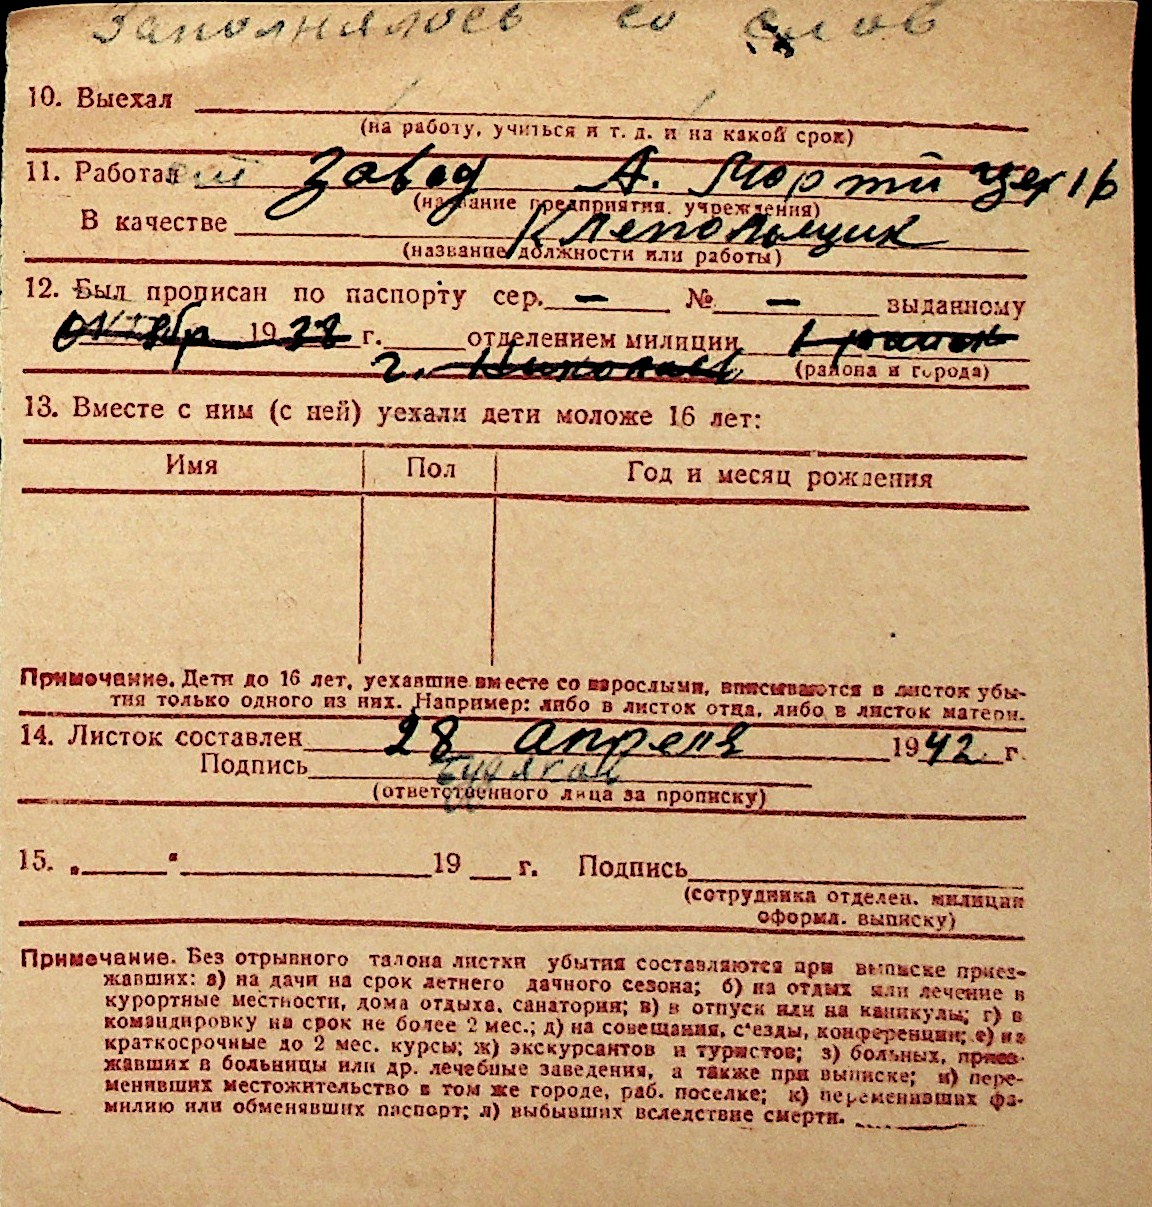 Заполнялось со слов
10. Выехал
(на работу, учиться и т. д. и на какой срок)
11. Работал Завод А. Марти цех 1 р
(название предприятия, учреждения)
В качестве Клепольщик
(название должности или работы)
12. Был прописан по паспорту сер. — № — выданному
октябр 1938 г. отделением милиции 1
г. Николаев (района и города)
13. Вместе с ним (с ней) уехали дети моложе 16 лет:
Имя Пол Год и месяц рождения
Примечание. Дети до 16 лет, уехавшие вместе со взрослыми, вписываются в листок убы-
тия только одного из них. Например: либо в листок отца, либо в листок матери.
14. Листок составлен 28 апреля 1942 г.
Подпись
(ответственного лица за прописку)
15. „ " 19 г. Подпись
(сотрудника отделен. милиции
оформл. выписку)
Примечание. Без отрывного талона листки убытия составляются при выписке приез-
жавших: а) на дачи на срок летнего дачного сезона; б) на отдых или лечение в
курортные местности, дома отдыха, санатории; в) в отпуск или на каникулы; г) в
командировку на срок не более 2 мес.; д) на совещания, с'езды, конференции; е) на
краткосрочные до 2 мес. курсы; ж) экскурсантов и туристов; з) больных, приез-
жавших в больницы или др. лечебные заведения, а также при выписке; и) пере-
менивших местожительство в том же городе, раб. поселке; к) переменивших фа-
милию или обменявших паспорт; л) выбывших вследствие смерти.